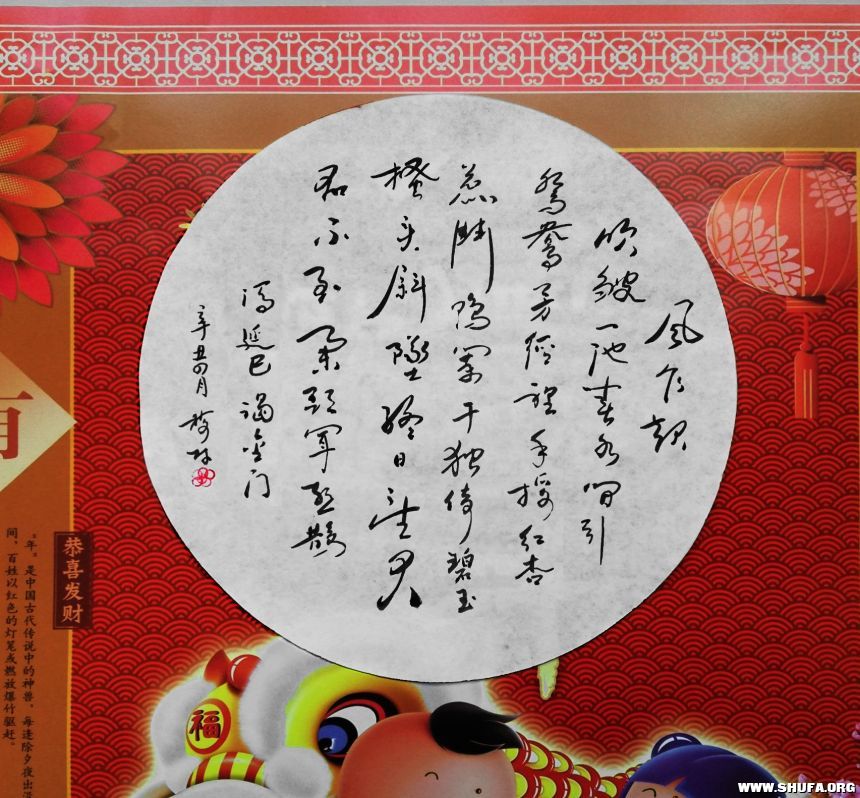 风乍起
吹皱一池春水闲引
鸳鸯芳径里手挼红杏
蕊鬥鸭阑干独倚碧玉
搔头斜坠终日望君
君不至举头闻喜鹊
冯延巳谒金门
辛丑四月
恭喜发财
“年”是中国古代传说中的神兽，每逢除夕夜出
间，百姓以红色的灯笼或燃放爆竹驱赶。
福
WWW.SHUFA.ORG